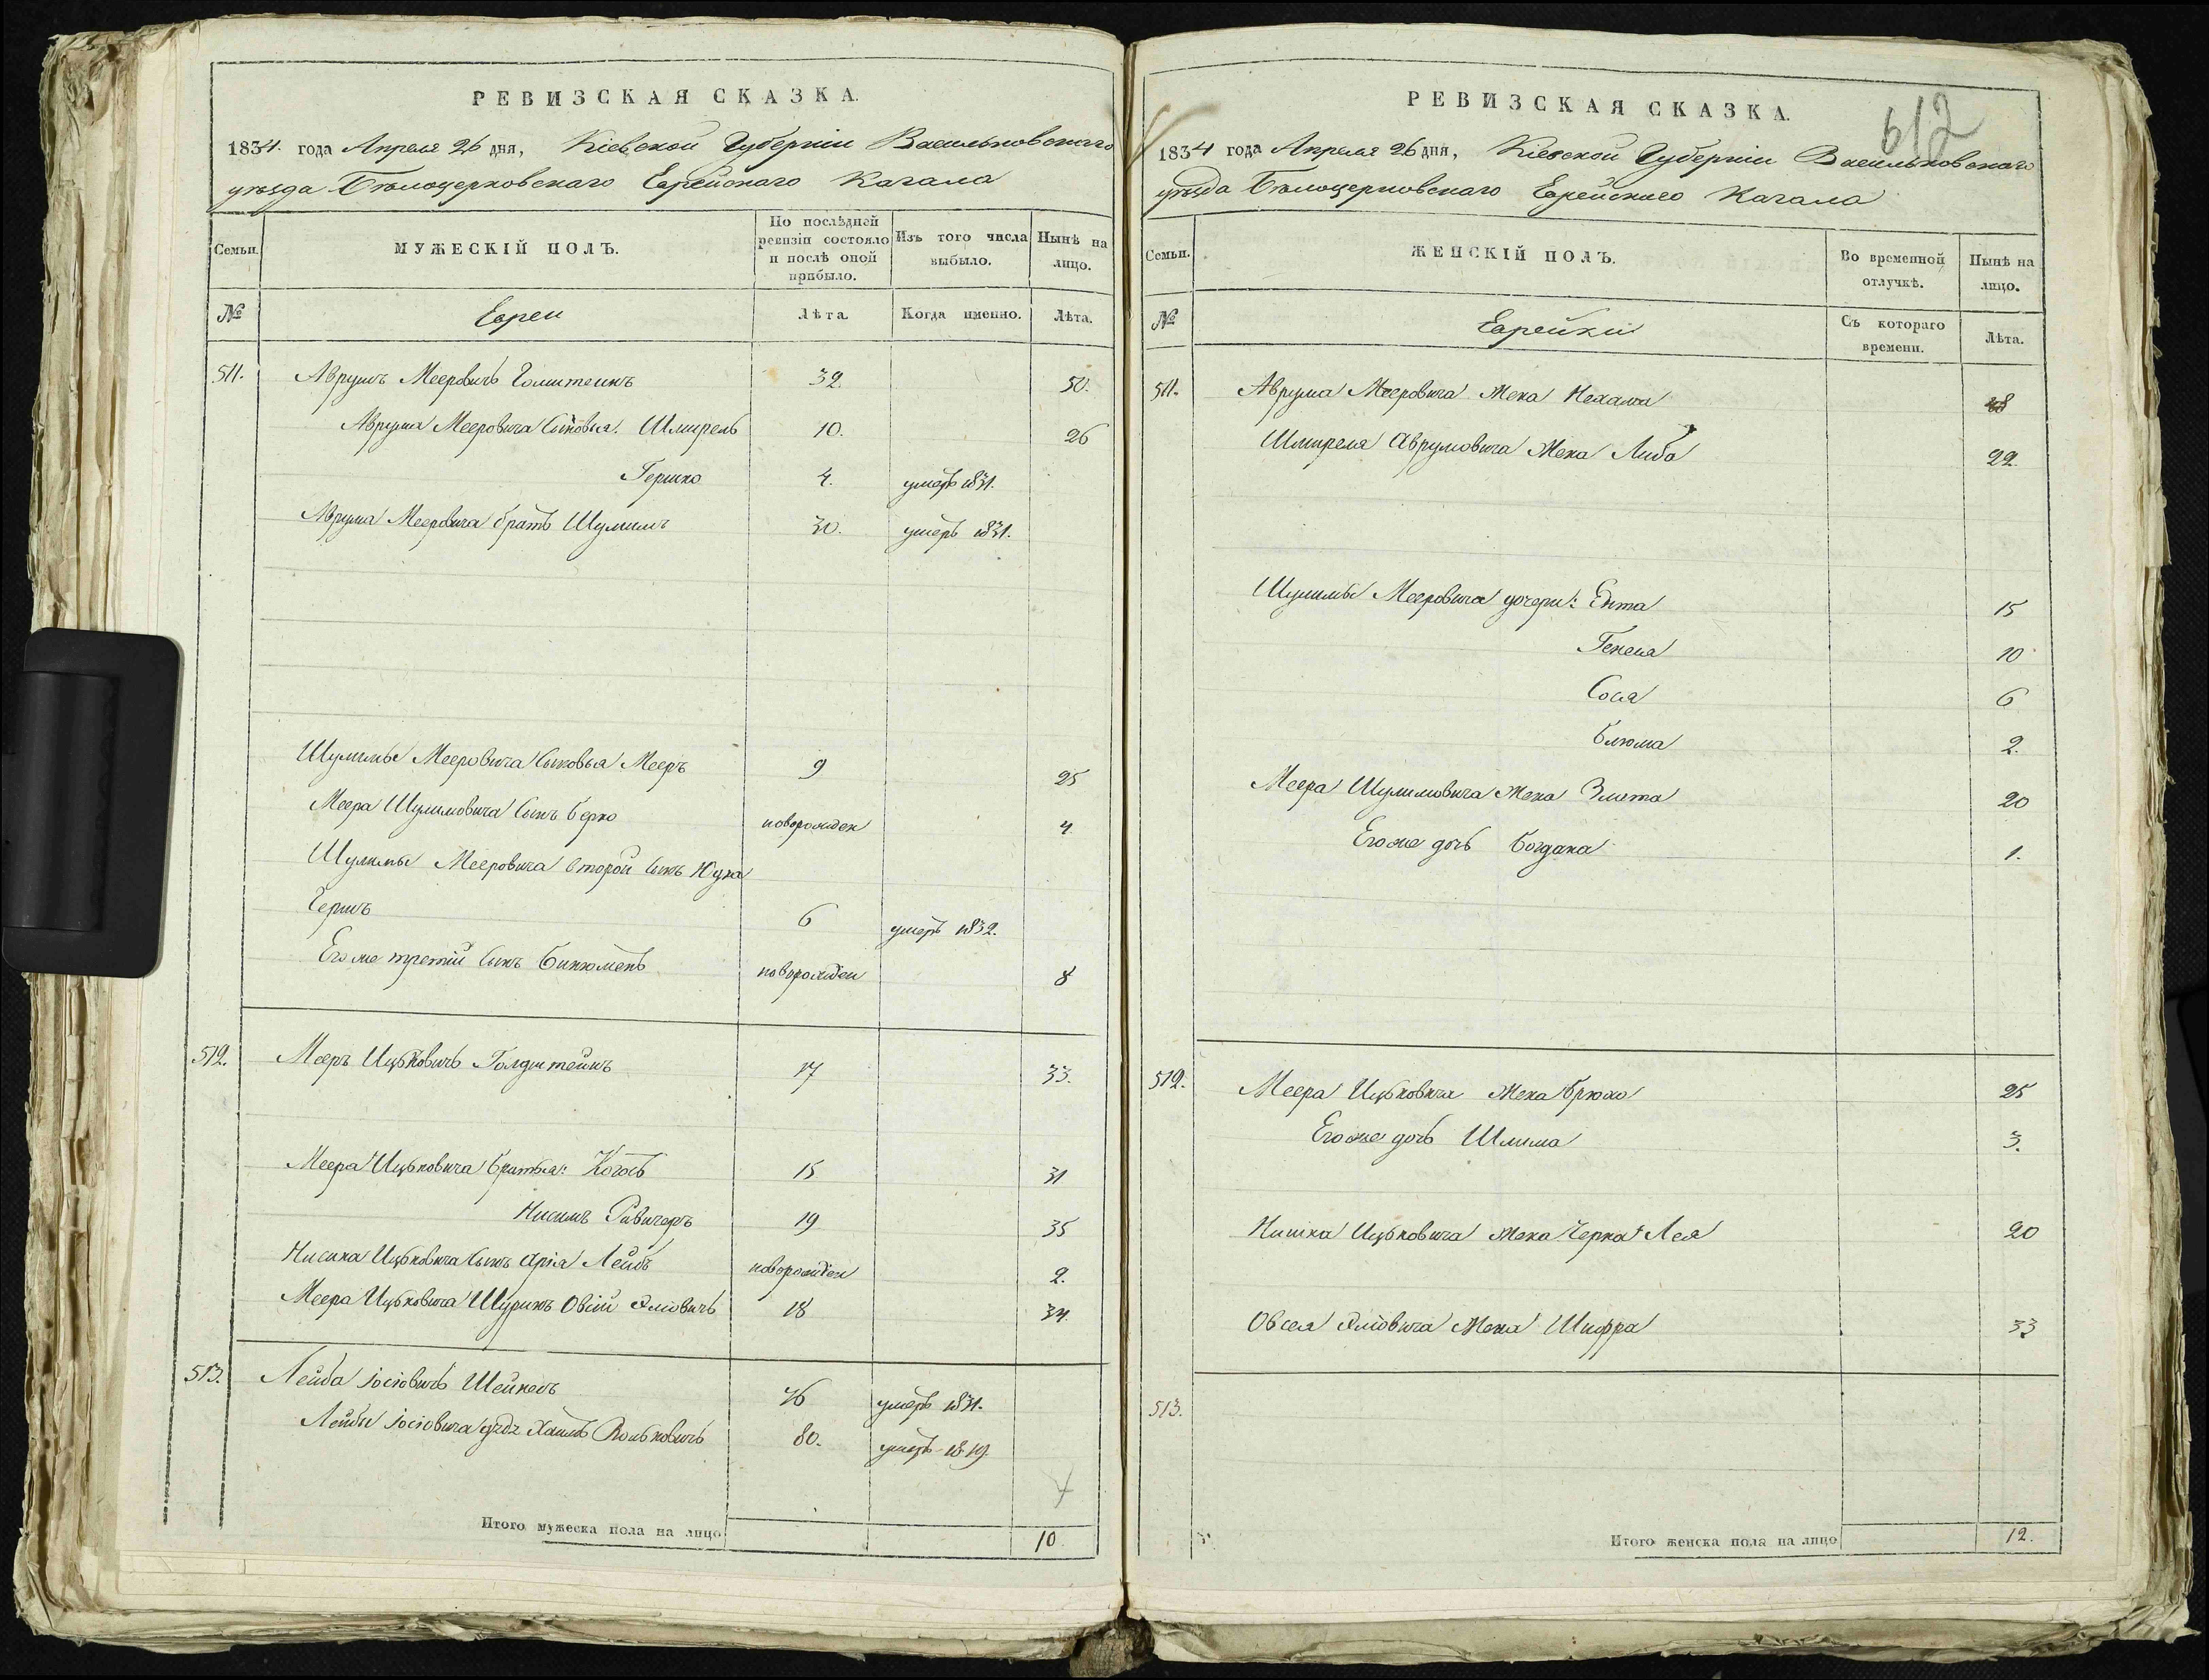 РЕВИЗСКАЯ СКАЗКА.
1834. года Апреля 26 дня, Кіевской Губерніи Васильковскаго
уѣзда Бѣлоцерковскаго Еврейскаго Кагала
Семьи.
МУЖЕСКІЙ ПОЛЪ.
По послѣдней ревизіи состояло и послѣ оной прибыло.
Изъ того числа выбыло.
Нынѣ на лицо.
№
Евреи
Лѣта
Когда именно.
Лѣта.
511. Аврумъ Мееровичь 32. 50.
Аврума Мееровича сыновья. Шмирель 10. 26
Гершко 4. умеръ 1831.
Аврума Мееровича братъ Шулимъ 30. умеръ 1831.
Шулимы Мееровича сыновья Мееръ 9 25
Меера Шулимовича сынъ Берко новорожден 4
Шулимы Мееровича второй сынъ Юда
Гершъ 6 умеръ 1832.
Его же третій сынъ Бинюменъ новорожден 8
512. Мееръ Ицьковичь Голдштейнъ 17 33.
Меера Ицьковича братья: 15 31
Нисинъ 19 35
Нисина Ицьковича сынъ Арія Лейбъ новорожден 2.
Меера Ицьковича Шуринъ Овсій 18 34.
513. Лейба Іосіовичь 76 умеръ 1831.
Лейбы Іосіовича дядя Хаимъ Волковичь 80. умеръ 1819.
Итого мужеска пола на лицо 10.
РЕВИЗСКАЯ СКАЗКА.
612
1834 года Апреля 26 дня, Кіевской Губерніи Васильковскаго
уѣзда Бѣлоцерковскаго Еврейскаго Кагала
Семьи.
ЖЕНСКІЙ ПОЛЪ.
Во временной отлучкѣ.
Нынѣ на лицо.
№
Еврейки
Съ котораго времени.
Лѣта.
511. Аврума Мееровича жена Нехама 48
Шмиреля Аврумовича жена Либа 22.
Шулимы Мееровича дочери: Ента 15
Генеся 10
Сося 6
Блюма 2.
Меера Шулимовича жена Злата 20
Его же дочь Богдана 1.
512. Меера Ицьковича жена Брюха 25
Его же дочь Шлима 3.
Ицьковича жена Черна Лея 20
Овсея жена Шифра 33
513.
Итого женска пола на лицо 12.